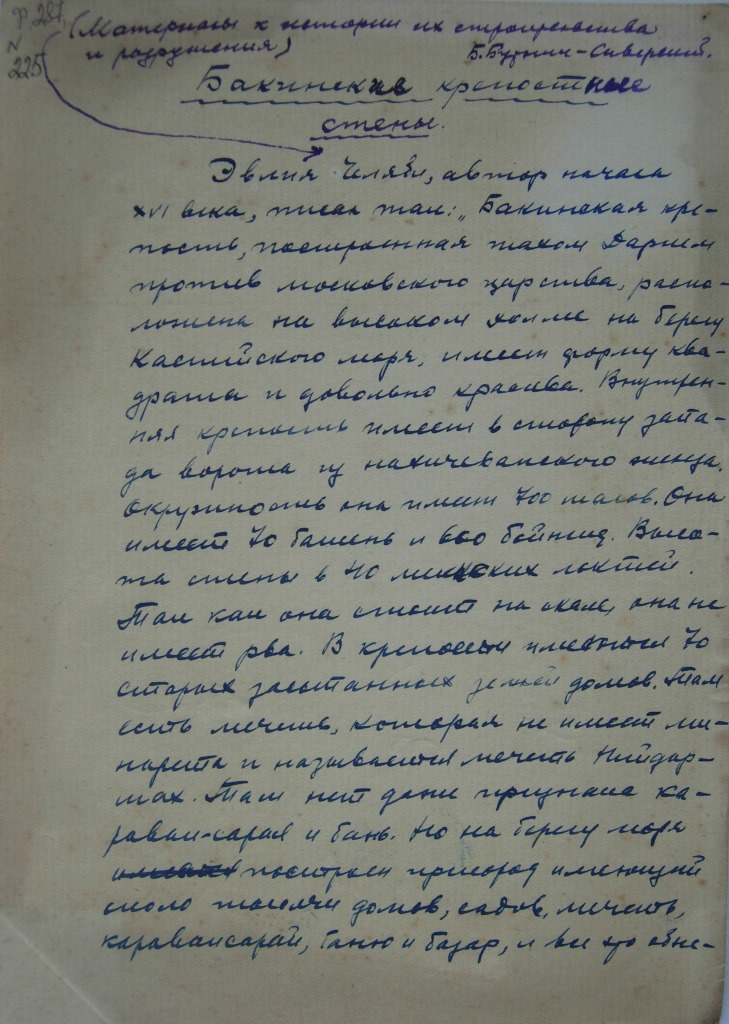 Ф. 281,
N
225
(Материалы к истории их строительства
и разрушения)
Б. -Сиверский.
Бакинские крепостные
стены.
Эвлия Челяби, автор начала
XVI века, писал так: „Бакинская кре-
пость, построенная шахом Дарием
против московского царства, распо-
ложена на высоком холме на берегу
Каспийского моря, имеет форму ква-
драта и довольно красива. Внутрен-
няя крепость имеет в сторону запа-
да ворота из нахичеванского
Окружность она имеет 700 шагов. Она
имеет 70 башень и 600 бойниц. Высо-
та стены в 40 локтей.
Так как она стоит на скале, она не
имеет рва. В крепости имеются 70
старых засыпанных землей домов. Там
есть мечеть, которая не имеет ми-
нарета и называется мечеть
Там нет даже признака ка-
раван-сарая и бань. Но на берегу моря
построен пригород имеющий
около тысячи домов, садов, мечеть,
каравансарай, баню и базар, и все это обне-